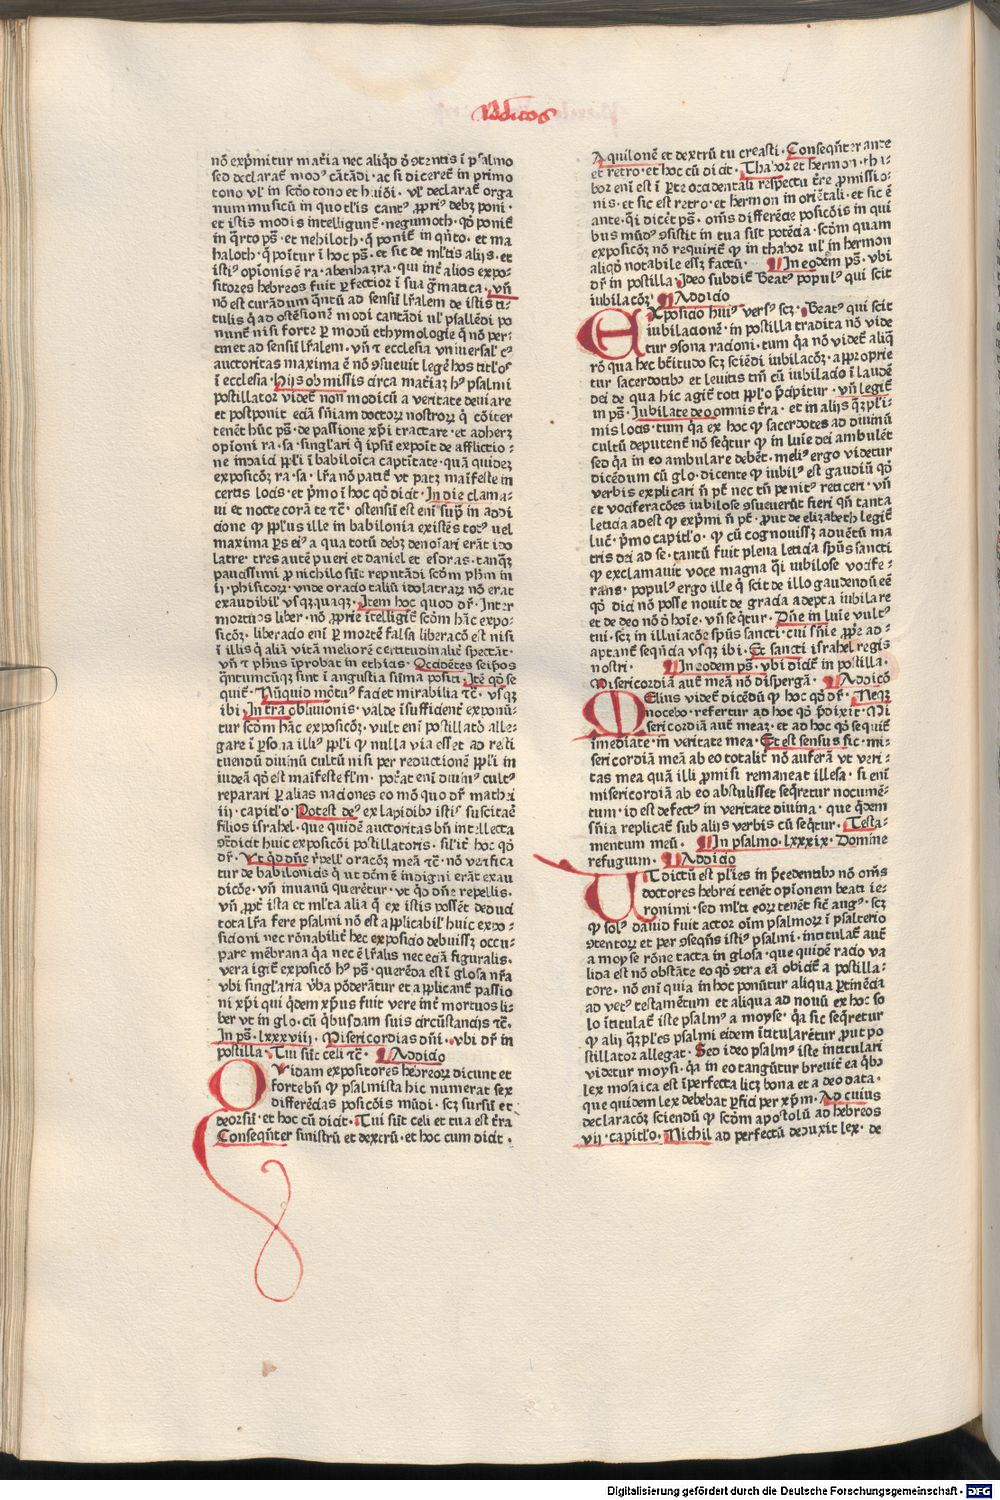 Additiões
nõ exp̃mitur mat̃ia nec aliq̃d ꝯ̃tentis ĩ psalmo
sed declarat̃ modꝰ cãtãdi · ac si diceret̃ in primo
tono vl̃ in scðo tono et huiõi · vl̃ declarat̃ orga
num musicũ in quo tl̃is cantꝰ ꝓpriꝰ debꝫ poni ·
et istis modis intelligunt̃ · negumoth · qð ponit̃
in q̃rto ps̃ · et nehiloth · q̃ ponit̃ in q̃nto · et ma
haloth · q̃ põitur ĩ hoc ps̃ · et sic de ml̃tis alijs · et
istiꝰ opĩonis ẽ ra · abenhazra · qui int̃ alios expo-
sitores hebreos fuit ꝑfectior ĩ sua g̃matica · vñ
nõ est curãdum q̃ntũ ad sensũ lr̃alem de istis ti-
tulis q̃ ad ostẽsionẽ modi cantãdi ul̃ psallẽdi po
nunt̃ nisi forte ꝑ modũ ethymologie q̃ nõ per-
tinet ad sensũ lr̃alem · vñ ⁊ ecclesia vniuersalꝰ cꝰ
auctoritas maxima ẽ nõ ꝯsueuit legẽ hos titl̃os
ĩ ecclesia · Hijs obmissis circa mat̃iaꝫ hꝰ psalmi
postillator videt̃ non modicũ a veritate deuiare
et postponit eciã sñiam doctoꝝ nostroꝝ q̃ cõiter
tenẽt hũc ps̃ · de passione xp̃i tractare · et adherꝫ
opĩoni ra · sa · singl̃ari q̃ ip̃sũ expoĩt de afflictio-
ne iudaici ppl̃i ĩ babiloĩca captĩtate · quã quideꝫ
exposicõꝫ ra · sa · lr̃a nõ patit̃ vt patꝫ maĩfeste in
certis locis · et p̃mo ĩ hoc qð dicit · In die clama-
ui et nocte corã te ⁊c̃ · ostensũ est enĩ suꝑ in addi
cione ꝙ ppl̃us ille in babilonia existẽs totꝰ uel
maxima ꝑs eiꝰ a qua totũ debꝫ denoĩari erãt ido
latre · tres autẽ pueri et daniel et esdras · tanq̃ꝫ
paucissimi ꝓ nichilo sũt reputãdi scðm ph̃m in
ij · phisicoꝝ · vnde oracio taliũ idolatraꝝ nõ erat
exaudibilꝰ vsq̃ꝫquaqꝫ · Item hoc quod dr̃ · Inter
mortuos liber · nõ ꝓprie ĩtelligit̃ scðm hãc expo-
sicõꝫ · liberacio enĩ ꝑ mortẽ falsa liberacõ est nisi
ĩ illis q̃ aliã vitã meliorẽ certitudinalit̃ spectãt ·
vñ ⁊ ph̃us ĩprobat in ethias · Occidẽtes seip̃os
q̃ntumcũqꝫ sint ĩ angustia sũma positi · Itẽ qð se
quit̃ · Nũquid mõtuꝰ faciet mirabilia ⁊c̃ · vsqꝫ
ibi · In tra obliuionis · valde ĩsufficient̃ exponũ-
tur scðm hãc exposicõꝫ · vult enĩ postillatõ alle-
gare ĩ ꝑsona illiꝰ ppl̃i ꝙ nulla via esset ad resti
tuendũ diuinũ cultũ nisi per reductionẽ ppl̃i in
iudeã qð est maĩfeste fl̃m · pot̃at enĩ diuinꝰ cultꝰ
reparari ꝑ alias naciones eo mõ quo dr̃ math̃i
iij · capitl̃o · Potest deꝰ ex lapidibꝰ istiꝰ suscitaẽ
filios israhel · que quidẽ auctoritas bñ intellecta
ꝯ̃tdicit huic exposicõi postillatoris · sil̃it̃ hoc qð
dr̃ · Vt q̃d dñe r̃pell̃ oracõꝫ meã ⁊c̃ · nõ verifica
tur de babilonicis q̃ ut dcm̃ ẽ indigni erãt exau
dicõe · vñ inuanũ querẽtur · vt q̃d dñe repellis ·
vñ ꝓpt̃ ista et ml̃ta alia q̃ ex istis possẽt deduci
tota lr̃a fere psalmi nõ est applicabilꝰ huic expo-
sicioni nec rõnabilit̃ hec exposicio debuissꝫ occu-
pare mẽbrana q̃a nec ẽ lr̃alis nec eciã figuralis ·
vera igit̃ exposicõ hꝰ ps̃ · querẽda est ĩ glosa nr̃a
vbi singl̃aria v̾ba põderãtur et applicant̃ passio
ni xp̃i qui q̃dem xp̃us fuit vere int̃ mortuos li-
ber vt in glo · cũ q̃busdam suis circũstancijs ⁊c̃ ·
In ps̃ · lxxxviij · Misericordias dñi · vbi dr̃ in
postilla · Tui sũt celi ⁊c̃ · ¶ Addicio
Quidam expositores hebreoꝝ dicunt et
fortebñ ꝙ psalmista hic numerat sex
differẽcias posicõis mũdi · scꝫ sursũ et
deorsũ · et hoc cũ dicit · Tui sũt celi et tua est t̃ra
Consequẽter sinistrũ et dextrũ · et hoc cum dicit ·
Aquilonẽ et dextrũ tu creasti · Conseqñter ante
et retro · et hoc cũ dicit · Thabor et hermon · tha-
bor enĩ est ĩ ꝑte occidentali respectu t̃re ꝓmissio-
nis · et sic est retro · et hermon in oriẽtali · et sic ẽ
ante · q̃i dicẽt ps̃ · oms̃ differẽcie posicõis in qui
bus mũdꝰ ꝯsistit in tua sũt potẽcia · scðm quam
exposicõꝫ nõ requirit̃ ꝙ in thabor ul̃ in hermon
aliqð notabile essꝫ factũ · ¶ In eodẽm ps̃ · vbi
dr̃ in postilla · Ideo subdit̃ Beatꝰ populꝰ qui scit
iubilacõꝫ · ¶ Addicio
Exposicio huiꝰ versꝰ scꝫ · Beatꝰ qui scit
iubilacionẽ · in postilla tradita nõ vide
tur ꝯsona racioni · tum q̃a nõ videt̃ aliq̃
rõ qua hec bt̃itudo scꝫ sciẽdi iubilacõꝫ · appꝛoprie
tur sacerdotibꝰ et leuitis tm̃ cũ iubilacio ĩ laudẽ
dei de qua hic agit̃ toti ppl̃o p̃cipitur · vñ legit̃
in ps̃ · Iubilate deo omnis t̃ra · et in alijs q̃ꝫpl̃i-
mis locis · tum q̃a ex hoc ꝙ sacerdotes ad diuinũ
cultũ deputent̃ nõ seq̃tur ꝙ in luĩe dei ambulẽt
sed q̃a in eo ambulare debẽt · meliꝰ ergo videtur
dicẽdum cũ glo · dicente ꝙ iubilꝰ est gaudiũ qð
verbis explicari ñ pt̃ nec tñ penitꝰ reticeri · vñ
et vociferacões iubilose ꝯsueuerũt fieri qñ tanta
leticia adest ꝙ exp̃mi ñ pt̃ · ꝓut de elizabeth legit̃
luc̃ · p̃mo capitl̃o · ꝙ cũ cognouissꝫ aduẽtũ ma
tris dei ad se · tantũ fuit plena leticia sp̃us sancti
ꝙ exclamauit voce magna q̃i iubilose vocife-
rans · populꝰ ergo ille q̃ scit de illo gaudendũ eẽ
qð dici nõ posse nouit de gracia adepta iubilare
et de deo nõ ð hoĩe · vñ seq̃tur · Dñe in luĩe vultꝰ
tui · scꝫ in illuĩacõe sp̃us sancti · cui sñie ꝓp̃e ad-
aptant̃ seqñcia vsqꝫ ibi · Et sancti israhel regis
nostri · ¶ In eodem ps̃ · vbi dicit̃ in postilla ·
Misericordiã aut̃ meã nõ disperg̃ã · ¶ Addicõ
Melius videt̃ dicẽdũ ꝙ hoc qð dr̃ · Neqꝫ
nocebo · refertur ad hoc qð p̃dixit · Mi
sericordiã aut̃ meaꝫ · et ad hoc qð sequit̃
imediate · in veritate mea · Et est sensus sic · mi-
sericordiã meã ab eo totalit̃ nõ auferã vt veri-
tas mea quã illi ꝓmisi remaneat illesa · si enĩ
misericordiã ab eo abstulisset seq̃retur nocumẽ-
tum · id est defectꝰ in veritate diuina · que q̃dem
sñia replicat̃ sub alijs verbis cũ seq̃tur · Testa-
mentum meũ · ¶ In psalmo · lxxxix · Domine
refugium · ¶ Addicio
Vt dictũ est pl̃ies in p̃cedentibꝰ nõ om̃s
doctores hebrei tenẽt opĩonem beati ie-
ronimi · sed ml̃ti eoꝝ tenẽt sic̃ augꝰ · scꝫ
ꝙ solꝰ dauid fuit actor oĩm psalmoꝝ ĩ psalterio
ꝯtentoꝝ et per ꝯseqñs istiꝰ psalmi · intitulat̃ aut̃
a moyse rõne tacta in glosa · que quidẽ racio va
lida est nõ obstãte eo qð ꝯ̃tra eã obicit̃ a postilla-
tore · nõ enĩ quia in hoc ponũtur aliqua ꝑtinẽcia
ad vetꝰ testamẽtum et aliqua ad nouũ ex hoc so
lo ĩtitulat̃ iste psalmꝰ a moyse · q̃a sic seq̃retur
ꝙ alij q̃ꝫples psalmi eidem ĩtitularẽtur ꝓut po
stillatoꝛ allegat · Sed ideo psalmꝰ iste intitulari
videtur moysi · q̃a in eo tangũtur breuit̃ ea q̃bꝰ
lex mosaica est ĩperfecta licꝫ bona et a deo data ·
que quidem lex debebat ꝑfici per xp̃m · Ad cuius
declaracõꝫ sciendũ ꝙ scðm apostolũ ad hebreos
vij · capitl̃o · Nichil ad perfectũ deduxit lex · de
Digitalisierung gefördert durch die Deutsche Forschungsgemeinschaft - DFG